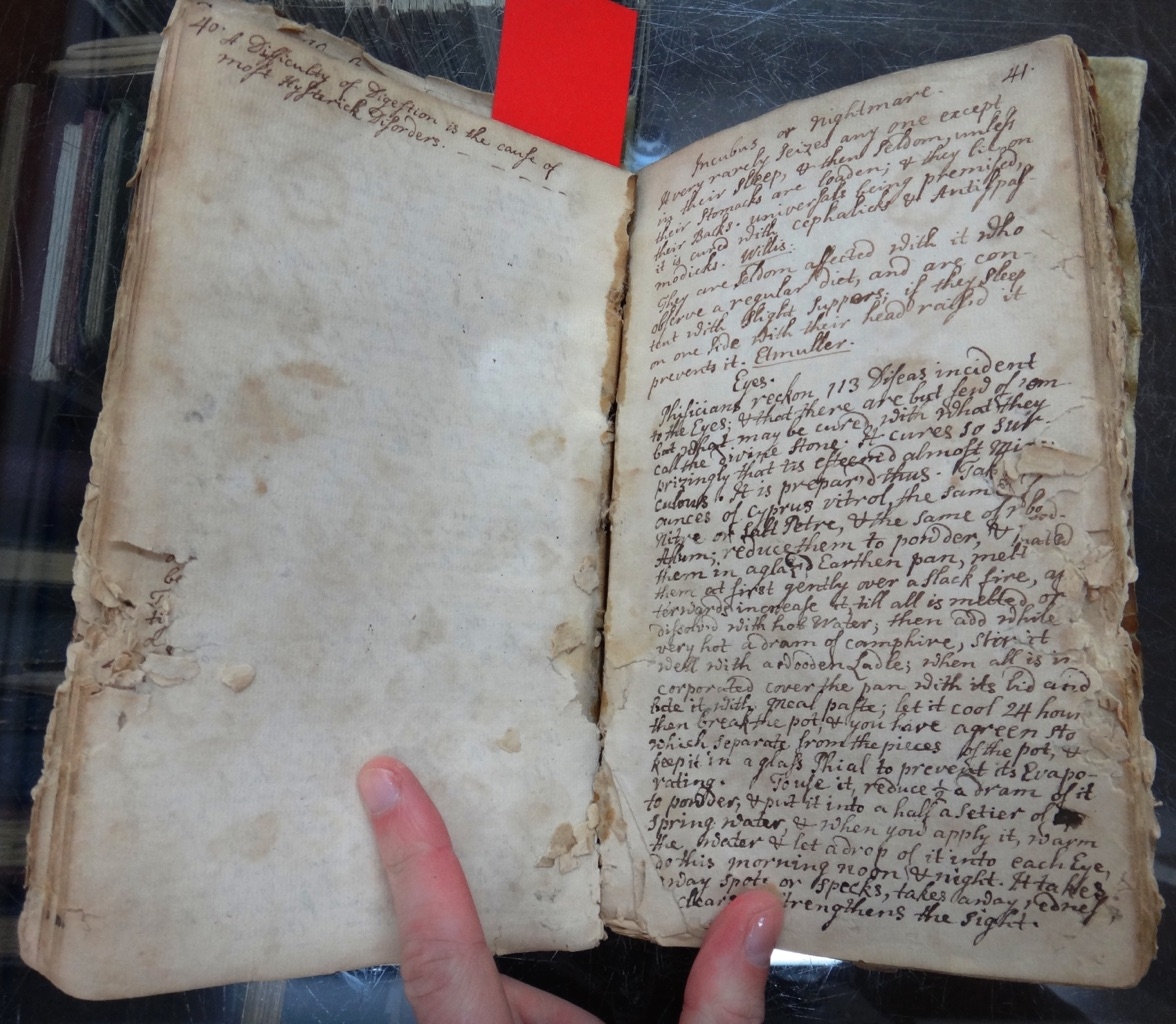 40.
A Difficulty of Digestion is the cause of
most Hysterick Disorders. - - - - -
41.
Incubus or Nightmare.
A very rarely seizes any one except
in their sleep, & then seldom, unless
their stomacks are loaden; & they lie on
their Backs. universals being premised,
it is cured with cephalicks & Antispas
modicks. Willis:
They are seldom affected with it who
observe a regular diet, and are con-
tent with slight suppers; if they sleep
on one side with their head raised it
prevents it. Etmuller.
Eyes.
Phisicians reckon 113 Diseas incident
to the Eyes; & that there are but few of 'em
but what may be cured with what they
call the Divine stone. It cures so sur-
prizingly that tis esteemed almost Mi-
culous. It is prepar'd thus. Tak
ounces of Cyprus vitrol, the sam
Nitre or salt Petre, & the same of
Alum; reduce them to powder, &
them in a glazd Earthen pan, melt
them at first gently over a slack fire, af
terwards increase it till all is melted, or
dissolved with hot Water; then add while
very hot a dram of camphire, stir it
well with a wooden Ladle; when all is in
corporated cover the pan with its lid and
lute it with meal paste; let it cool 24 hour
then break the pot, & you have a green sto
which separate from the pieces of the pot, &
keep it in a glass Phial to prevent its Evapo-
rating. To use it, reduce ½ a dram of it
to powder; & put it into a half a setier of
spring water, & when you apply it, warm
the water & let a drop of it into each Eye,
do this morning noon & night. It takes
away spots or specks, takes away rednes
clears strengthens the sight.